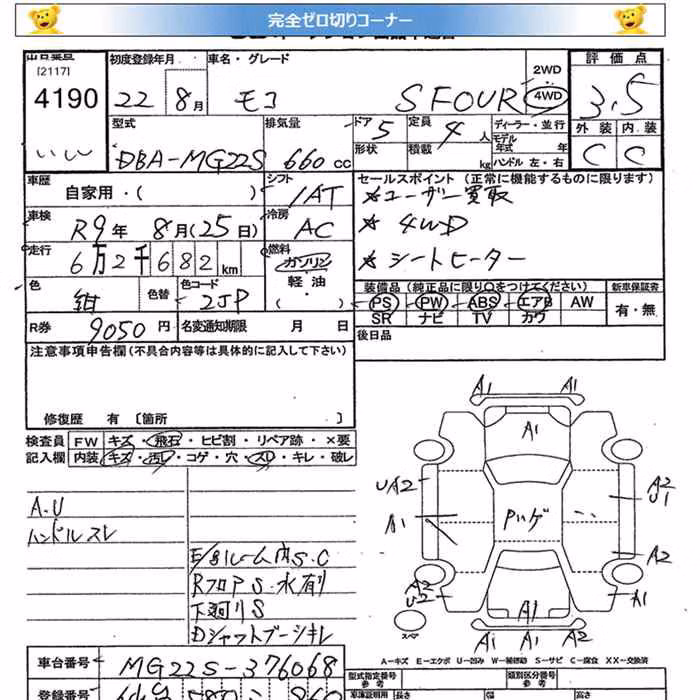 完全ゼロ切りコーナー
[2117]
4190
初度登録年月
22 8月
車名・グレード
モコ S FOUR
2WD
4WD
評価点
3.5
外装 内装
C C
型式
DBA-MG22S
排気量
660 cc
ドア 5
形状
定員 4 人
積載 kg
ディーラー・並行
モデル年式 年
ハンドル 左・右
車歴
自家用・( )
シフト
IAT
車検
R9年 8月(25日)
冷房
AC
走行
6万2千682km
燃料
ガソリン
軽油
・
( )
色
紺
色替
色コード
2JP
R券 9050円
名変通知期限 月 日
セールスポイント (正常に機能するものに限ります)
*ユーザー買取
* 4WD
*シートヒーター
装備品 (純正品に限り○をつけてください)
PS PW ABS エアB AW
SR ナビ TV カワ
新車保証書
有・無
後日品
注意事項申告欄(不具合内容等は具体的に記入して下さい)
修復歴 有 〔箇所 〕
検査員 FW キズ・飛石・ヒビ割・リペア跡・×要
記入欄 内装 キズ・汚レ・コゲ・穴・スレ・キレ・破レ
A.U
ハンドルスレ
E/Gルーム内S.C
RフロアS・水有り
下廻りS
Dシャフトブーツキレ
A1 A1
A1
UA2
A2
U1
A1
Pハゲ
A2
A2
U2
A1
A1
A1 A1 A2
スペア
A-キズ E-エクボ U-凹み W-補修跡 S-サビ C-腐食 XX-交換済
車台番号 MG22S-376068
型式指定番号
参考
類別区分番号
参考
登録番号
長さ 幅 高さ